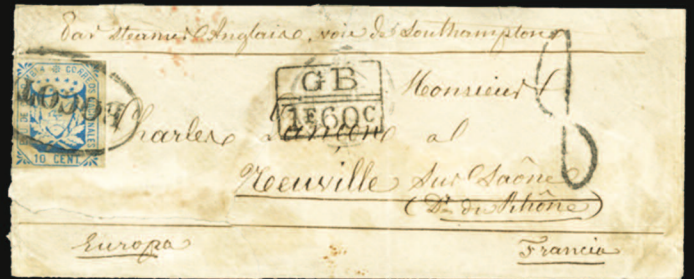 Par Steamer Anglais, voie de Southampton
CORREOS NALES
BOGOTA
10 CENT.
GB
1F60C
Monsieur
Charles Lançon
al
Neuville Sur Saône
(Dt. du Rhône)
Europa
Francia